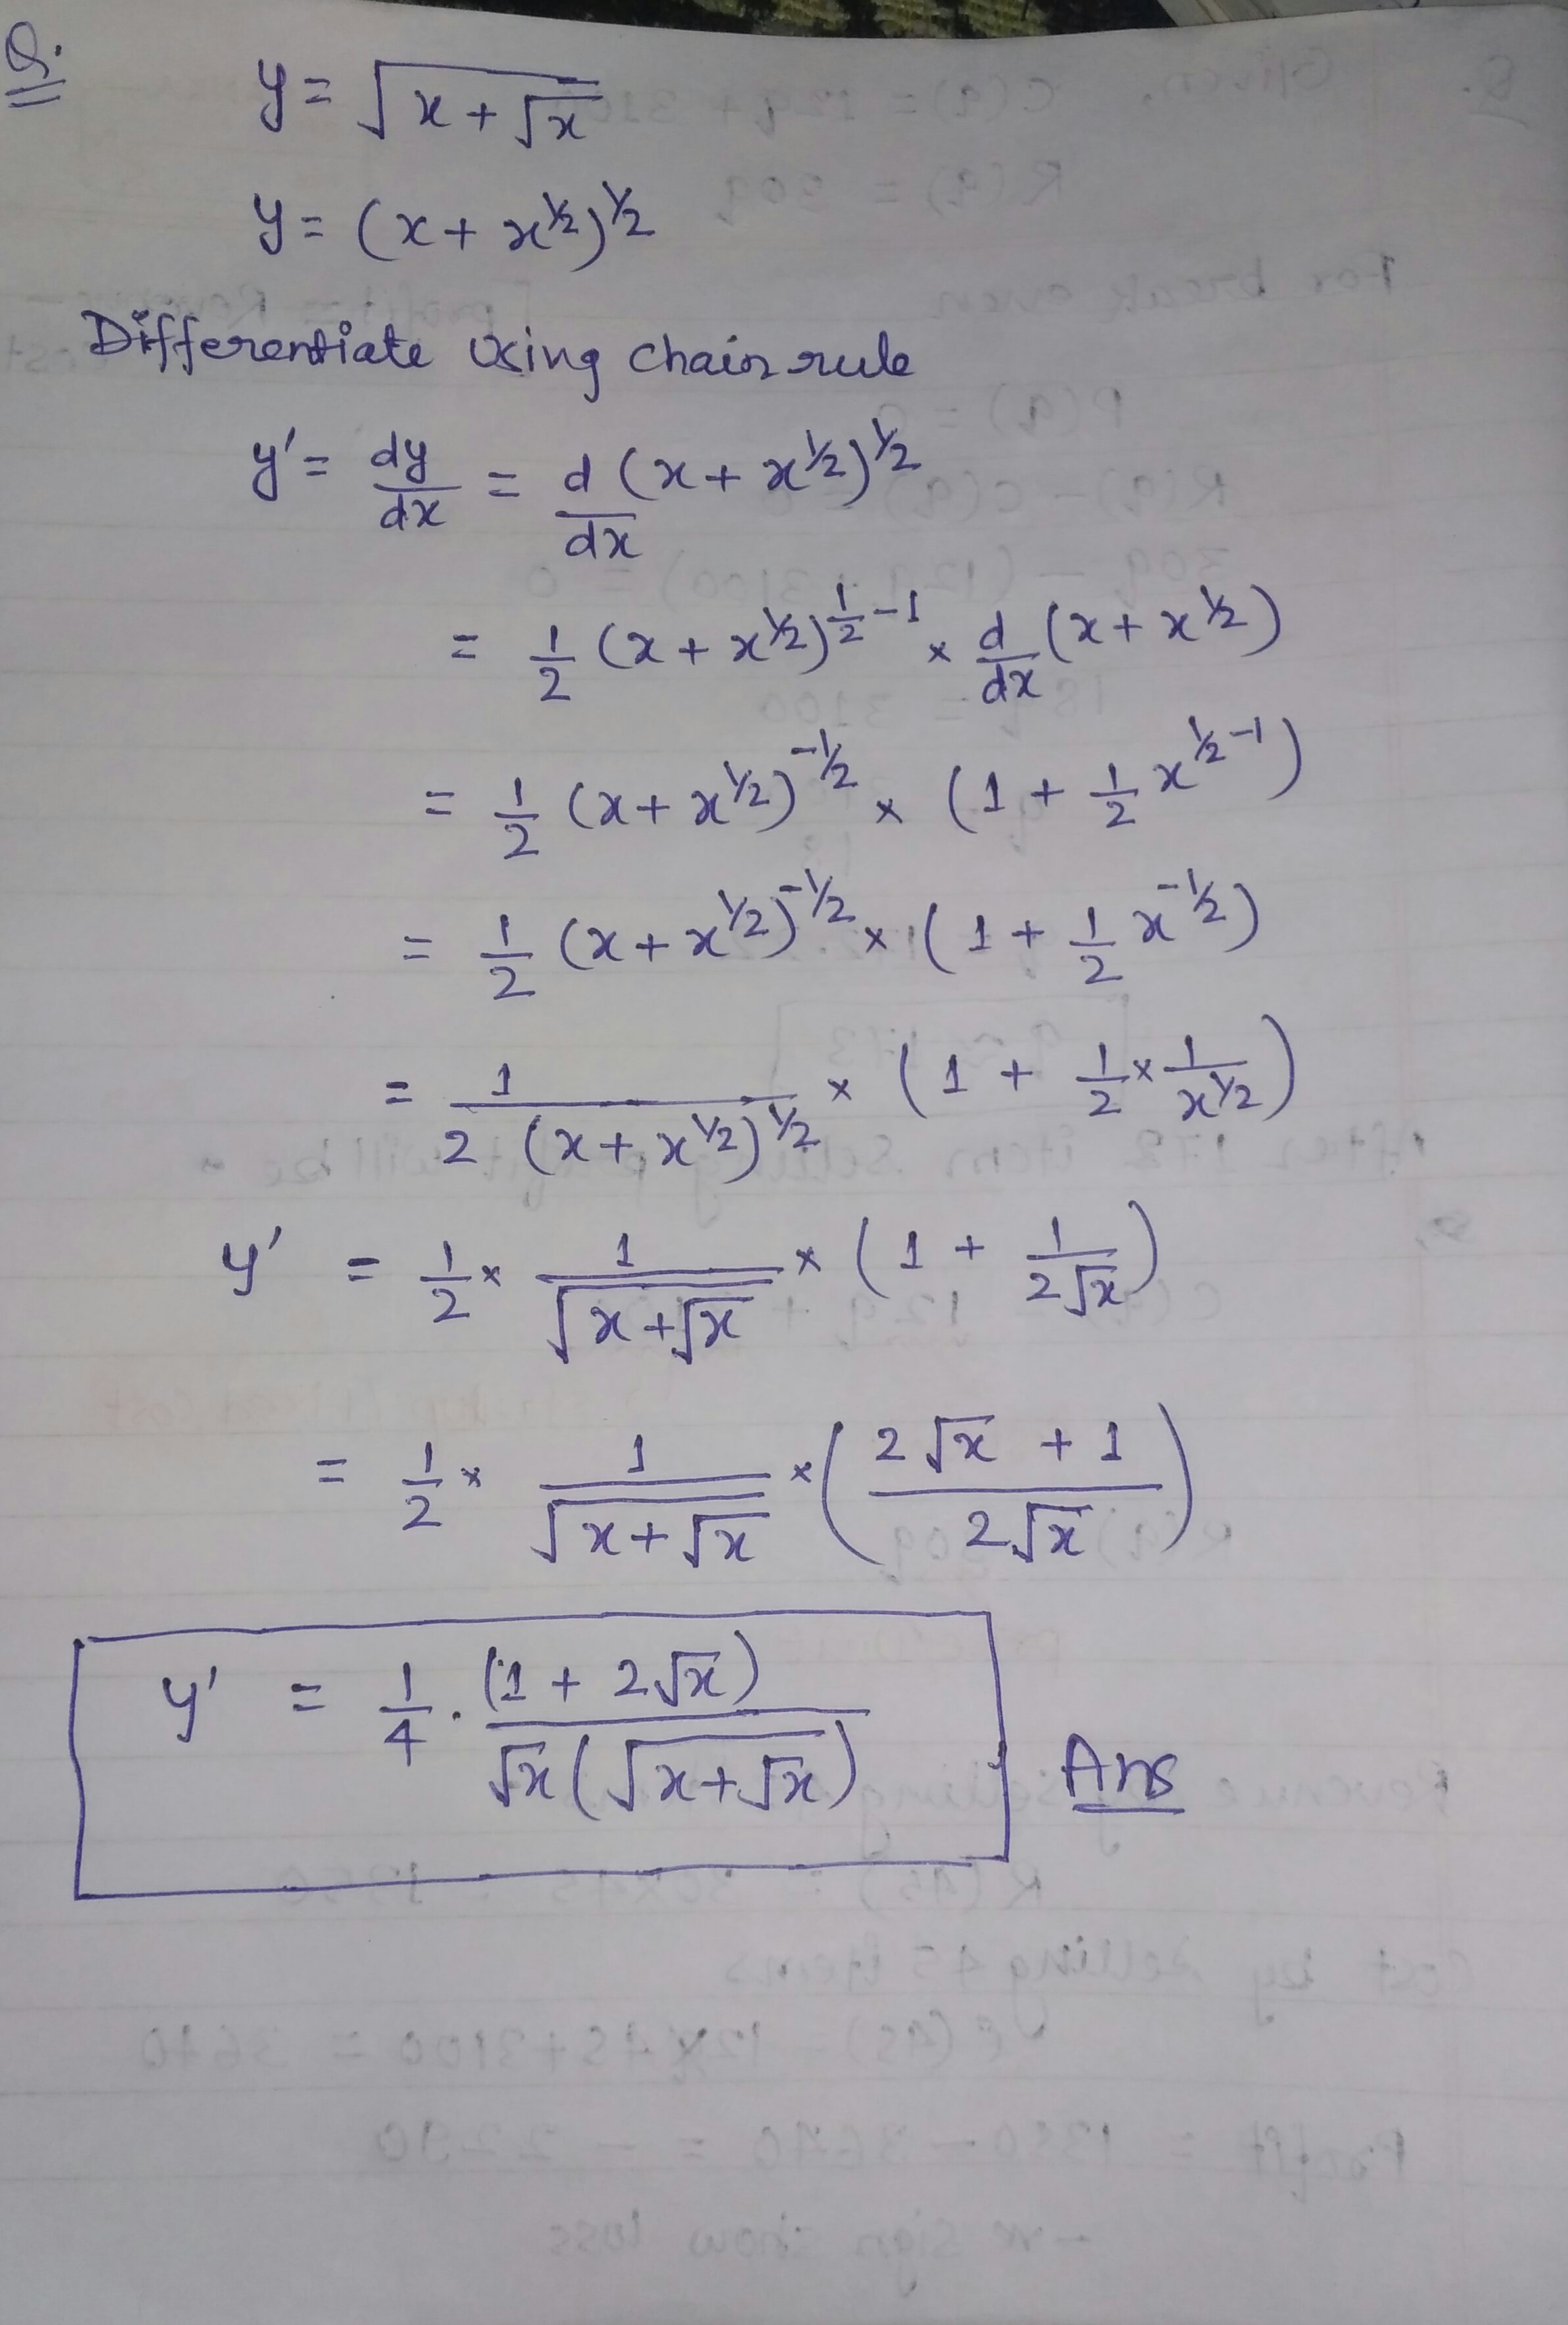 Q.
y = √(x + √x)
y = (x + x^½)^½
Differentiate using chain rule
y' = dy/dx = d/dx (x + x^½)^½
= 1/2 (x + x^½)^(1/2 - 1) × d/dx (x + x^½)
= 1/2 (x + x^½)^-½ × (1 + 1/2 x^(½ - 1))
= 1/2 (x + x^½)^-½ × (1 + 1/2 x^-½)
= 1/(2 (x + x^½)^½) × (1 + 1/2 × 1/x^½)
y' = 1/2 × 1/√(x + √x) × (1 + 1/(2√x))
= 1/2 × 1/√(x + √x) × ((2√x + 1)/(2√x))
y' = 1/4 · (1 + 2√x)/(√x (√(x + √x))) Ans